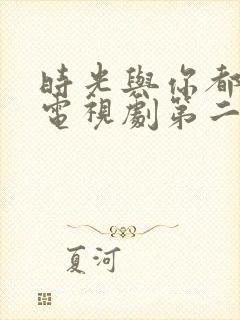 時光與你都
電視劇第二
夏河